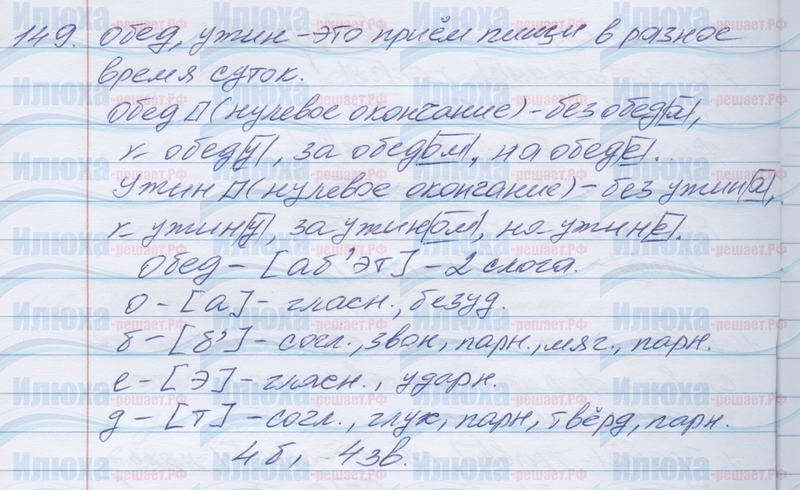 149. Обед, ужин – это приём пищи в разное
время суток.
Обед □ (нулевое окончание) – без обед|а|,
к обед|у|, за обед|ом|, на обед|е|.
Ужин □ (нулевое окончание) – без ужин|а|,
к ужин|у|, за ужин|ом|, на ужин|е|.
Обед – [аб'эт] – 2 слога.
о – [а] – гласн., безуд.
б – [б'] – согл., звон, парн., мяг., парн.
е – [э] – гласн., ударн.
д – [т] – согл., глух, парн, твёрд, парн.
4 б, 4 зв.
Илюха-решает.РФ